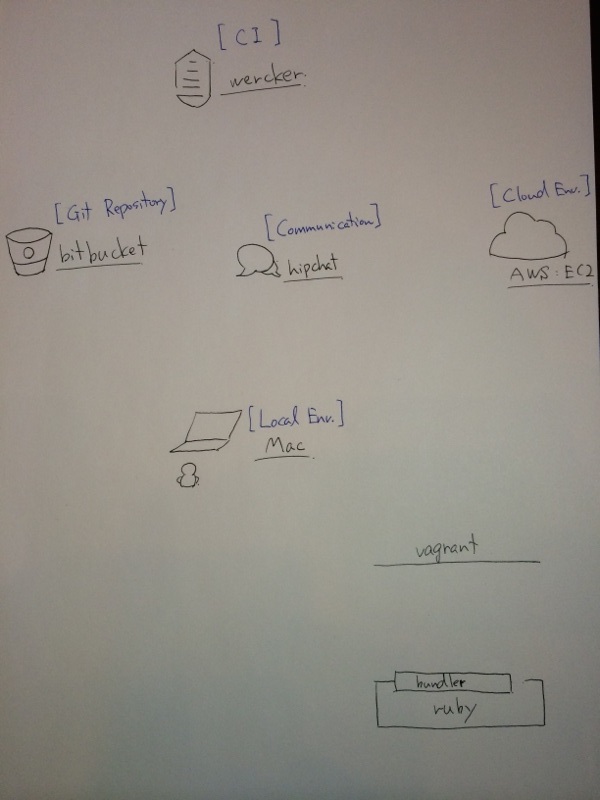 [CI]
wercker.
[Git Repository]
bitbucket
[Communication]
hipchat
[Cloud Env.]
AWS:EC2
[Local Env.]
Mac
vagrant
bundler
ruby